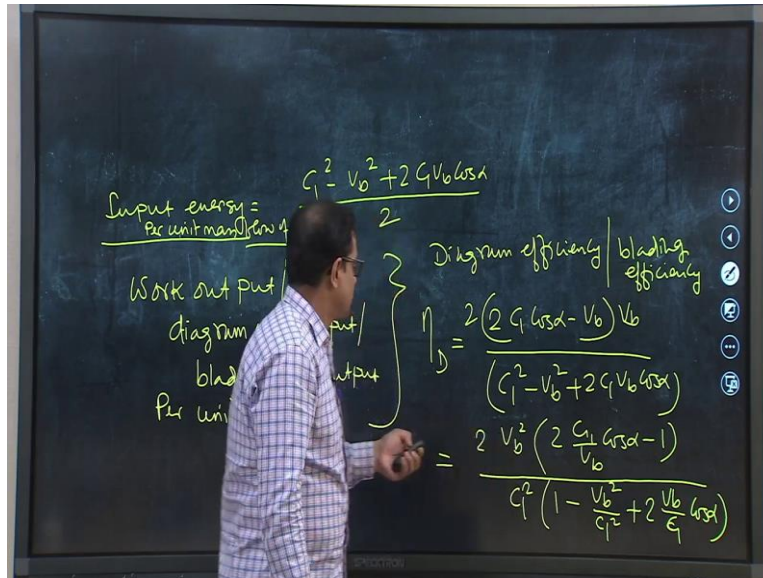 C₁² - V_b² + 2 C₁ V_b Cosα
Input energy =
Per unit mass flow of
2
Work out put /
diagram put /
blad utput
Per uni
Diagram efficiency / blading efficiency
η_D = 2 (2 C₁ Cosα - V_b) V_b
(C₁² - V_b² + 2 C₁ V_b Cosα)
= 2 V_b² (2 C₁/V_b Cosα - 1)
C₁² (1 - V_b²/C₁² + 2 V_b/C₁ Cosα)
SPECKTRON